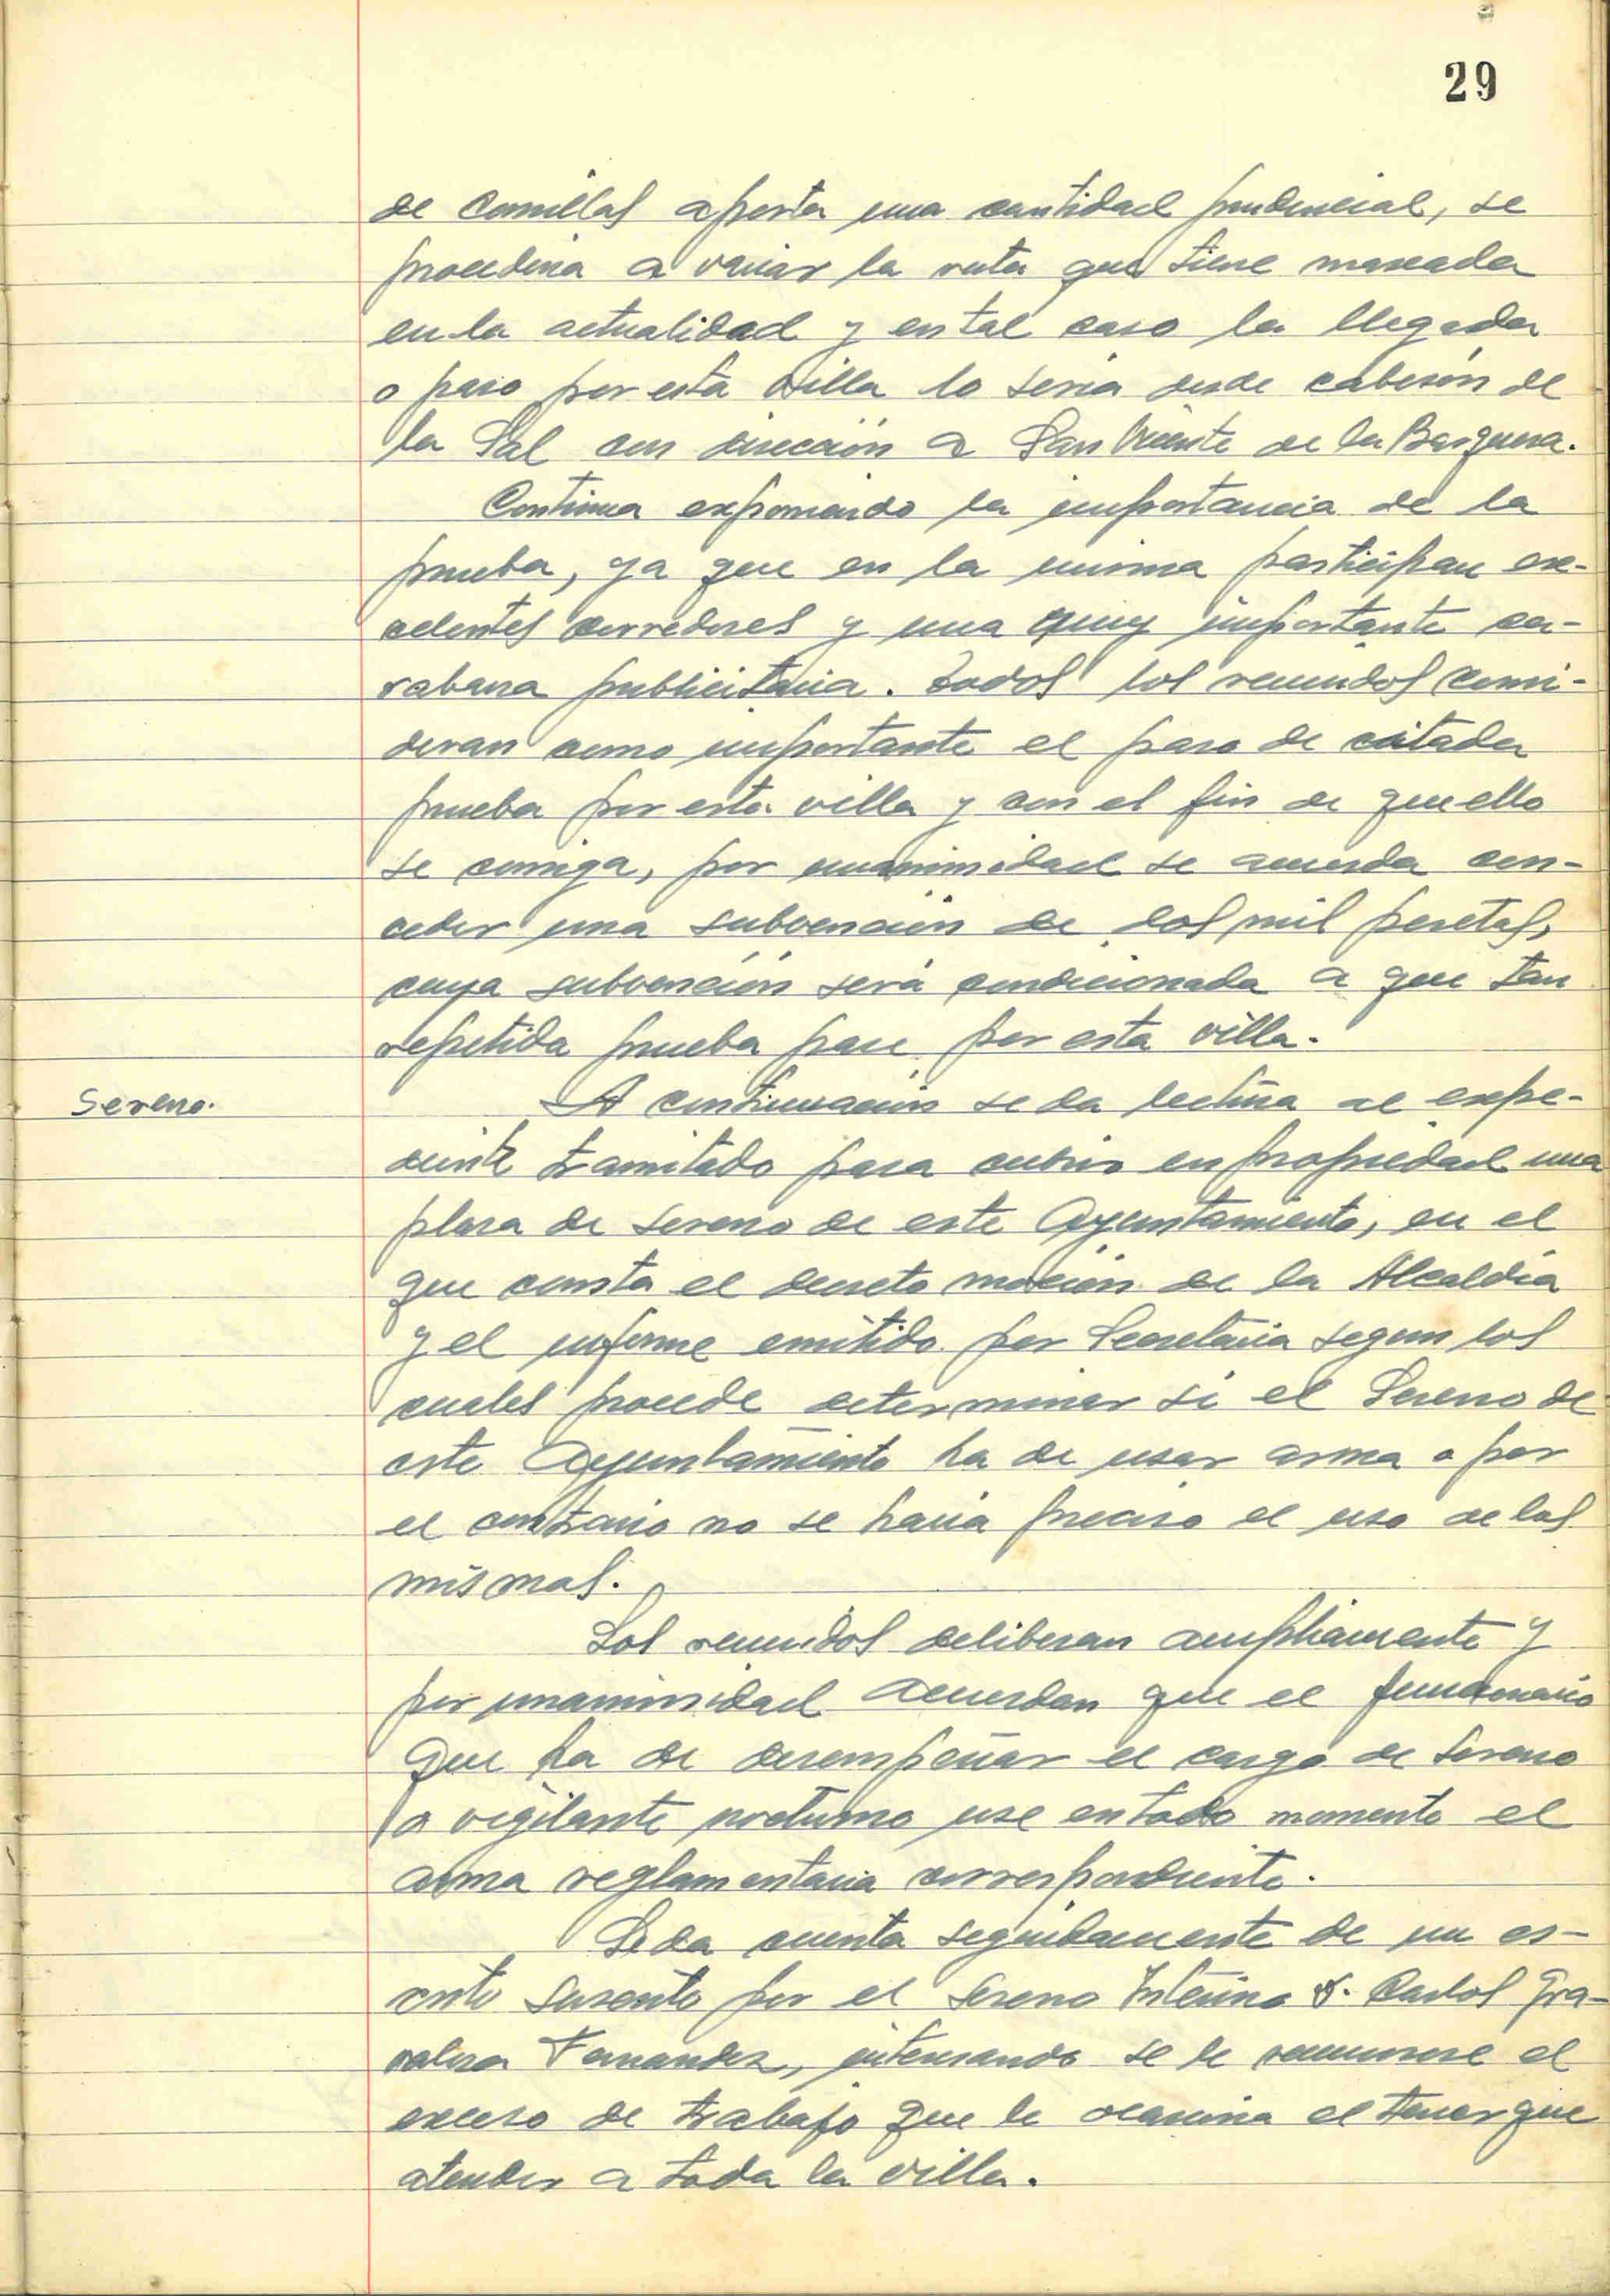 29
de Comillas aporta una cantidad prudencial, se
procederia a variar la ruta que tiene marcada
en la actualidad y en tal caso la llegada
o paso por esta villa lo seria desde cabezón de
la Sal con dirección a San Vicente de la Barquera.
Continua exponiendo la importancia de la
prueba, ya que en la misma participan exe-
celentes corredores y una muy importante ca-
rabana publicitaria. Todos los reunidos consi-
deran como importante el paso de citada
prueba por esta villa y con el fin de que ello
se consiga, por unanimidad se acuerda con-
ceder una subvención de dos mil pesetas,
cuya subvención será condicionada a que tan
repetida prueba pase por esta villa.
Sereno.
A continuación se da lectura al expe-
diente tramitado para cubrir en propiedad una
plaza de sereno de este Ayuntamiento, en el
que consta el decreto moción de la Alcaldía
y el informe emitido por Secretaria segun los
cuales procede determinar si el Sereno de
este Ayuntamiento ha de usar arma o por
el contrario no se haria preciso el uso de las
mismas.
Los reunidos deliberan ampliamente y
por unanimidad acuerdan que el funcionario
que ha de desempeñar el cargo de Sereno
o vigilante nocturno use en todo momento el
arma reglamentaria correspondiente.
Se da cuenta seguidamente de un es-
crito suscrito por el Sereno Interino D. Carlos
Fernandez, interesando se le remunere el
exceso de trabajo que le ocasiona el tener que
atender a toda la villa.